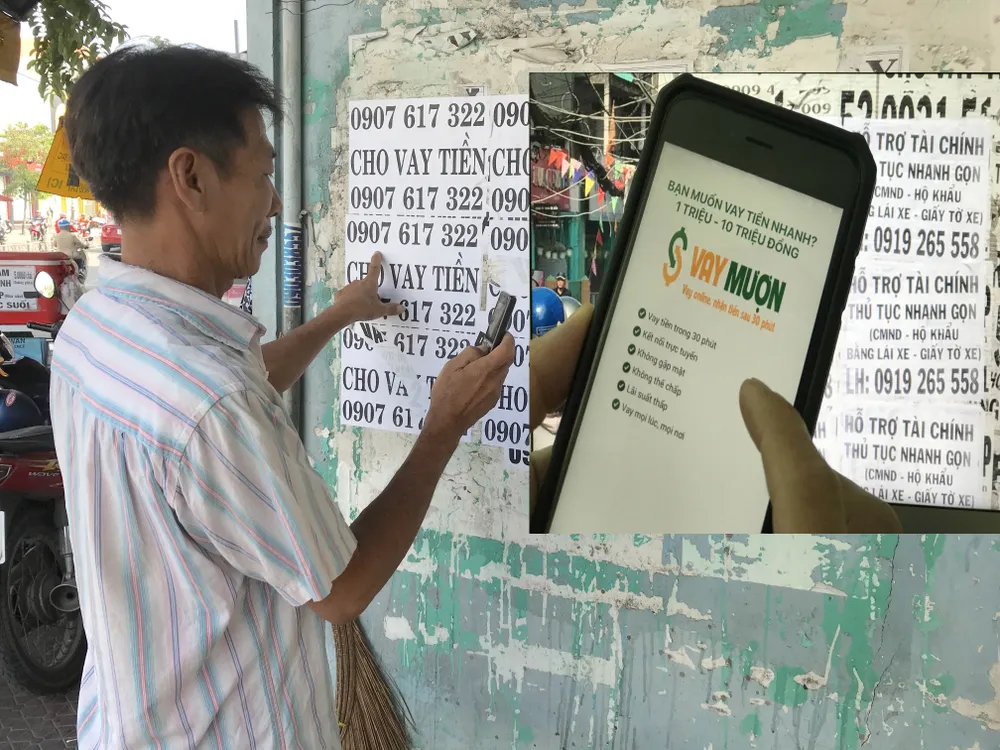 0907 617 322
CHO VAY TIỀN
0907 617 322
0907 617 322
VAY TIỀN
617 322
617 322
CHO
0907
090
CHO
090
090
HO
0907
BẠN MUỐN VAY TIỀN NHANH?
1 TRIỆU - 10 TRIỆU ĐỒNG
VAY MƯỢN
Vay online, nhận tiền sau 30 phút
Vay tiền trong 30 phút
Kết nối trực tuyến
Không gặp mặt
Không thế chấp
Lãi suất thấp
Vay mọi lúc, mọi nơi
HỖ TRỢ TÀI CHÍNH
TỤC NHANH GỌN
(CMND - HỘ KHẨU
LÁI XE - GIẤY TỜ XE)
: 0919 265 558
HỖ TRỢ TÀI CHÍNH
THỦ TỤC NHANH GỌN
(CMND - HỘ KHẨU
BẰNG LÁI XE - GIẤY TỜ XE)
LH: 0919 265 558
HỖ TRỢ TÀI CHÍNH
THỦ TỤC NHANH GỌN
(CMND - HỘ KHẨU
LÁI XE - GIẤY TỜ XE)